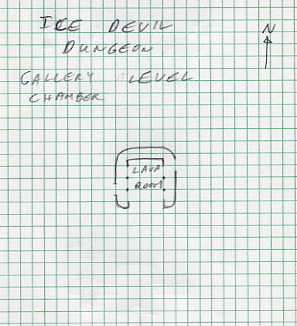 ICE DEVIL
DUNGEON
N
GALLERY LEVEL
CHAMBER
LAVA
ROOM